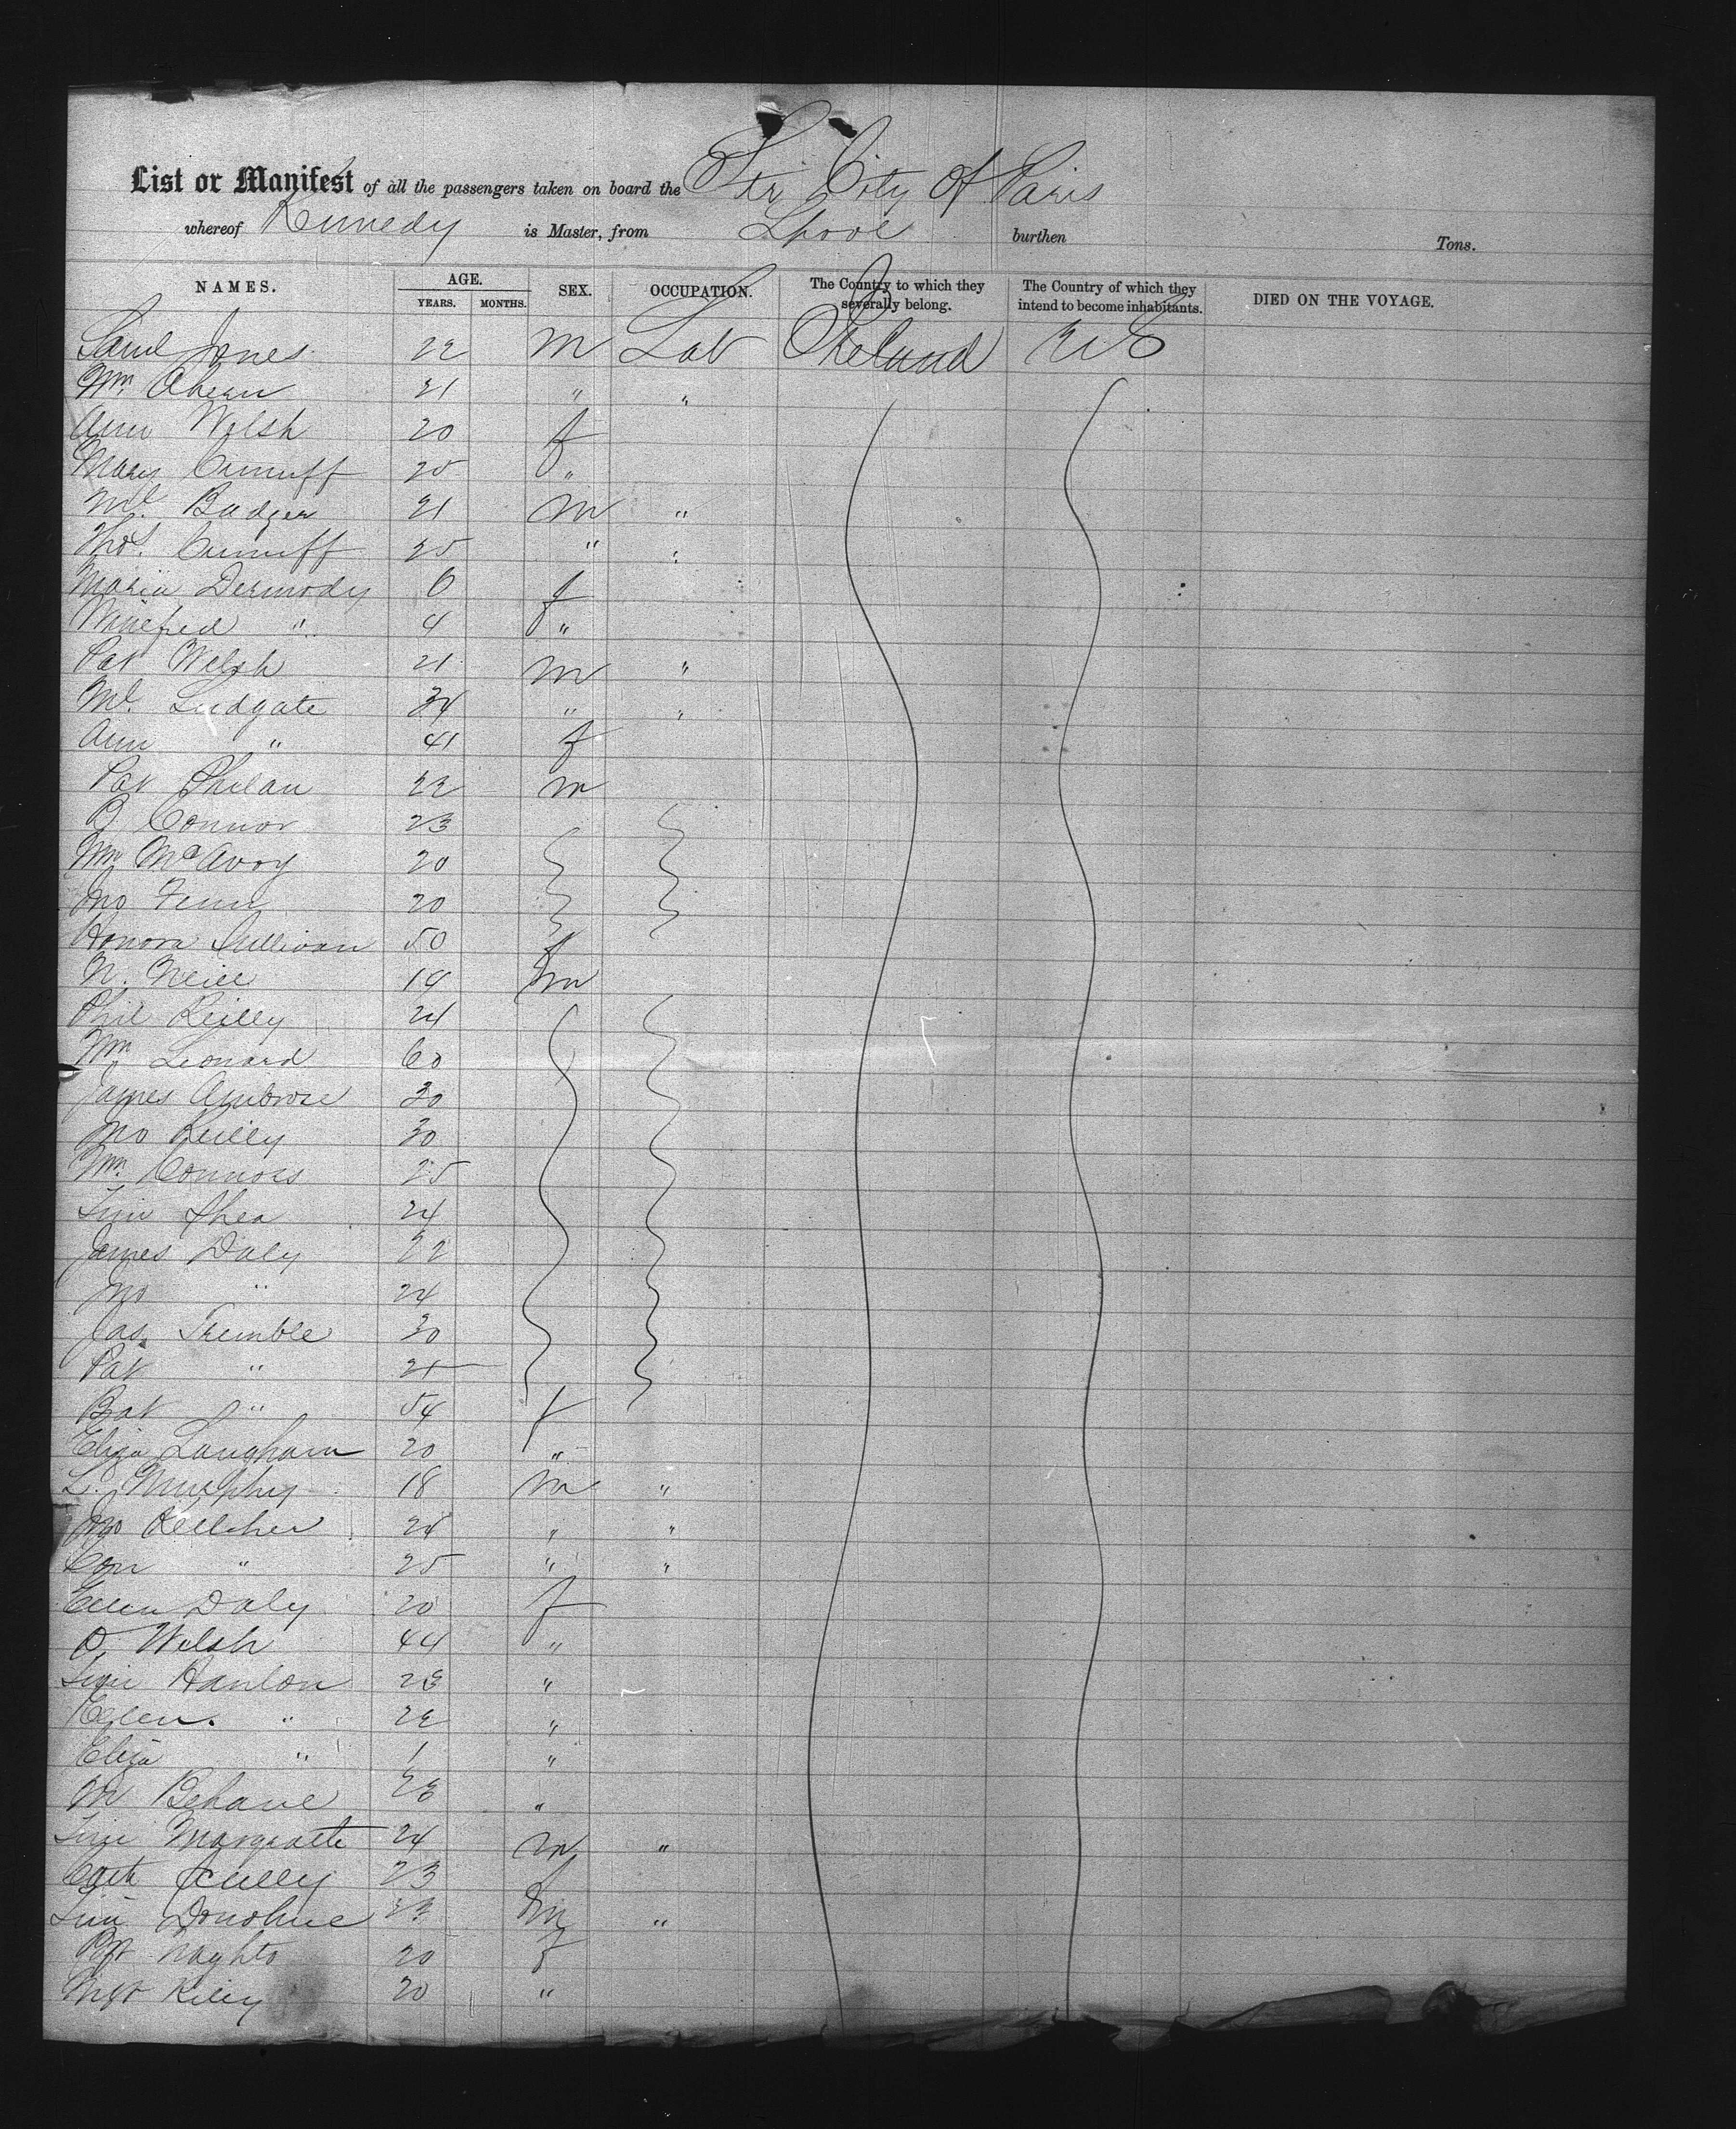 List or Manifest of all the passengers taken on board the Str City of Paris
whereof Kennedy is Master, from Lpool burthen Tons.
NAMES. AGE. YEARS. MONTHS. SEX. OCCUPATION. The Country to which they severally belong. The Country of which they intend to become inhabitants. DIED ON THE VOYAGE.
Saml Jones 22 m Lab Ireland US
Wm Ahern 21 " "
Ann Welsh 20 f
Mary Cunniff 20 "
Ml Badger 21 m "
Thos Cunniff 25 " "
Maria Dermody 6 f
Winefred " 4 "
Pat Welsh 21 m "
Ml Ludgate 34 " "
Ann " 41 f
Pat Phelan 22 m
P Connor 23
Wm McAvoy 20
Jno Fenn 20
Honora Sullivan 50 f
N. Neill 19 m
Phil Reilly 24
Wm Leonard 60
James Ambrose 30
Jno Reilly 30
Wm Connors 25
Tim Shea 24
James Daly 22
Jno " 24
Jas. Tremble 30
Pat " 21
Bat " 54 f
Eliza Langham 20 "
L. Murphy 18 m "
Jno Kelleher 24 " "
Con " 25 " "
Ellen Daly 20 f
D Welsh 44 "
Hanlon 28 "
Ellen " 22 "
Eliza " 1 "
M Behane "
24 m "
Cath Scully 23 f
Tim Donohue 23 m "
Naghto 20 f
Mgt Kiley 20 "